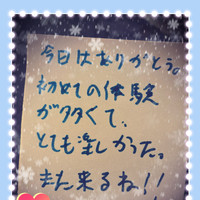 今日はありがとう。
初めての体験
が多くて、
とても楽しかったっ
また来るね!!